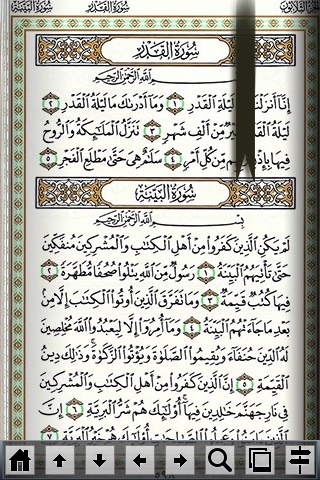 سُورَةُ القَدْرِ سُورَةُ البَيِّنَةِ
سُورَةُ القَدْرِ
بِسْمِ اللَّهِ الرَّحْمَٰنِ الرَّحِيمِ
إِنَّا أَنزَلْنَٰهُ لَيْلَةِ الْقَدْرِ ١ وَمَا أَدْرَىٰكَ مَا لَيْلَةُ الْقَدْرِ ٢
لَيْلَةُ الْقَدْرِ خَيْرٌ مِّنْ أَلْفِ شَهْرٍ ٣ تَنَزَّلُ الْمَلَٰٓئِكَةُ وَالرُّوحُ
فِيهَا بِإِذْنِ رَبِّهِم مِّن كُلِّ أَمْرٍ ٤ سَلَٰمٌ هِيَ حَتَّىٰ مَطْلَعِ الْفَجْرِ ٥
سُورَةُ البَيِّنَةِ
بِسْمِ اللَّهِ الرَّحْمَٰنِ الرَّحِيمِ
لَمْ يَكُنِ الَّذِينَ كَفَرُوا مِنْ أَهْلِ الْكِتَٰبِ وَالْمُشْرِكِينَ مُنفَكِّينَ
حَتَّىٰ تَأْتِيَهُمُ الْبَيِّنَةُ ١ رَسُولٌ مِّنَ اللَّهِ يَتْلُوا صُحُفًا مُّطَهَّرَةً ٢
فِيهَا كُتُبٌ قَيِّمَةٌ ٣ وَمَا تَفَرَّقَ الَّذِينَ أُوتُوا الْكِتَٰبَ إِلَّا مِنۢ
بَعْدِ مَا جَآءَتْهُمُ الْبَيِّنَةُ ٤ وَمَآ أُمِرُوٓا إِلَّا لِيَعْبُدُوا اللَّهَ مُخْلِصِينَ
لَهُ الدِّينَ حُنَفَآءَ وَيُقِيمُوا الصَّلَوٰةَ وَيُؤْتُوا الزَّكَوٰةَ ۚ وَذَٰلِكَ دِينُ
الْقَيِّمَةِ ٥ إِنَّ الَّذِينَ كَفَرُوا مِنْ أَهْلِ الْكِتَٰبِ وَالْمُشْرِكِينَ
فِي نَارِ جَهَنَّمَ خَٰلِدِينَ فِيهَآ ۚ أُولَٰٓئِكَ هُمْ شَرُّ الْبَرِيَّةِ ٦ إِنَّ
الَّذِينَ ءَامَنُوا وَعَمِلُوا الصَّٰلِحَٰتِ أُولَٰٓئِكَ هُمْ خَيْرُ الْبَرِيَّةِ ٧
٥٩٨